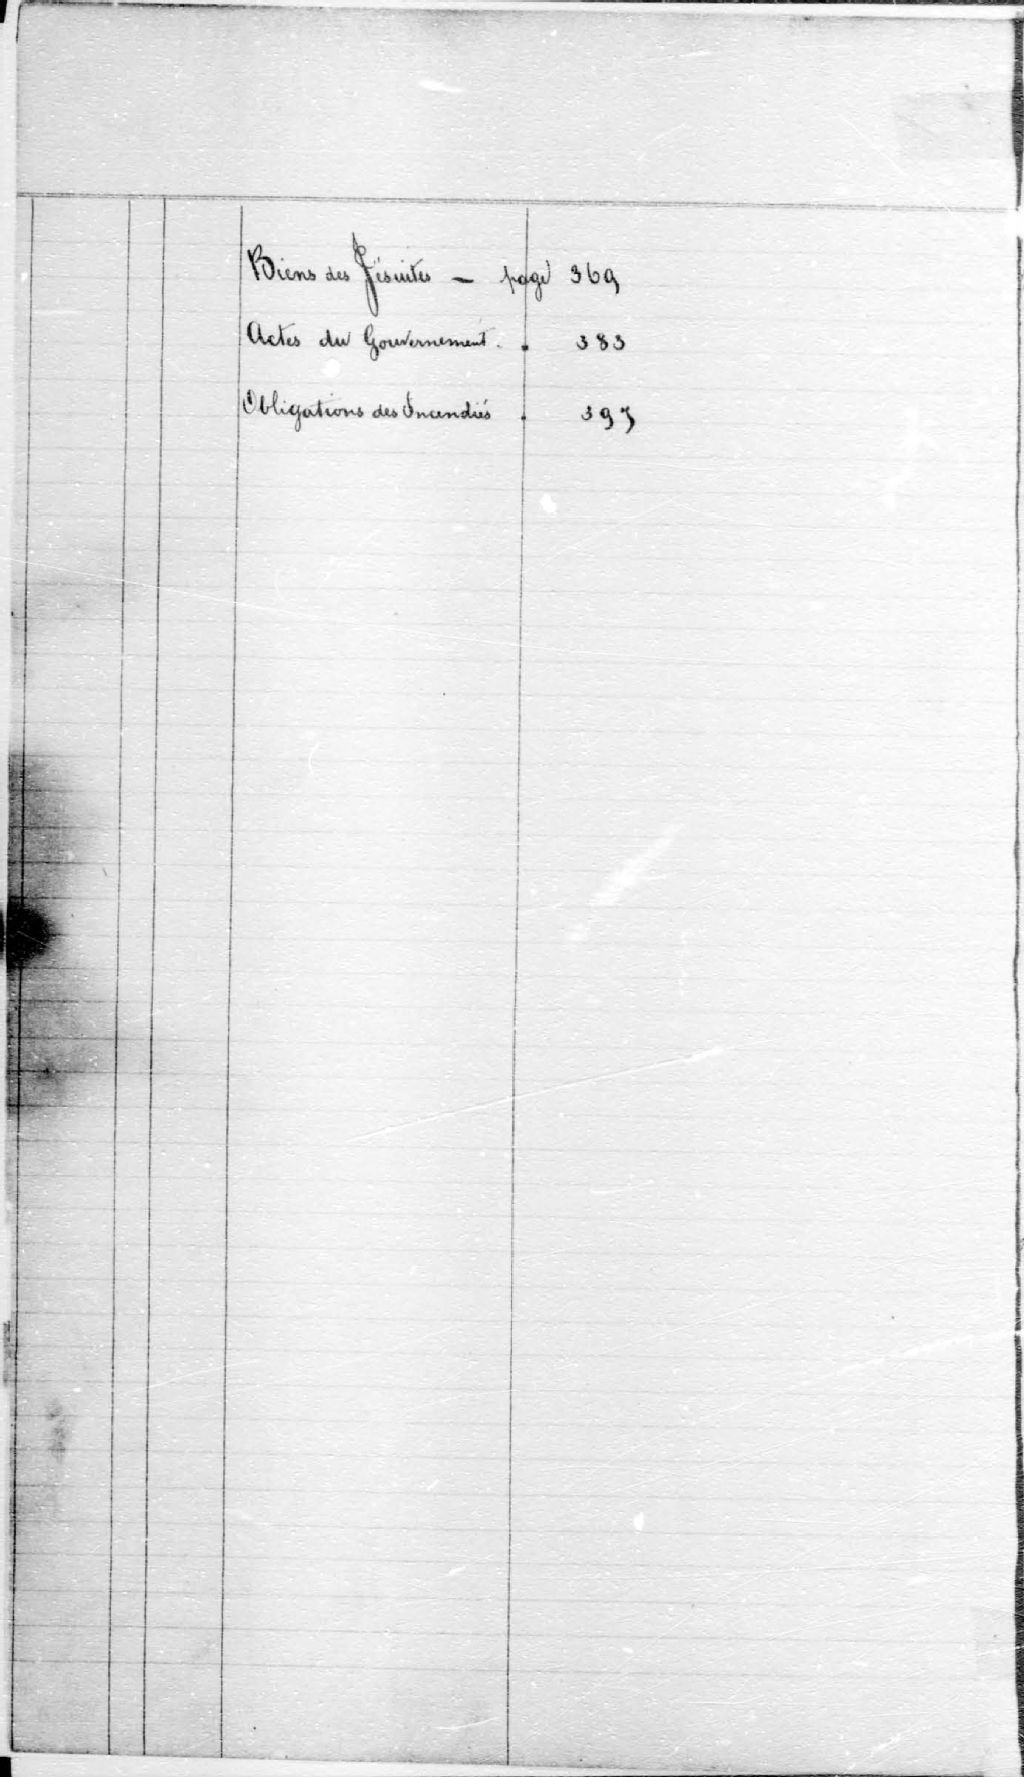 Biens des Jésuites — page 369
Actes du Gouvernement . 383
Obligations des Incendiés . 397